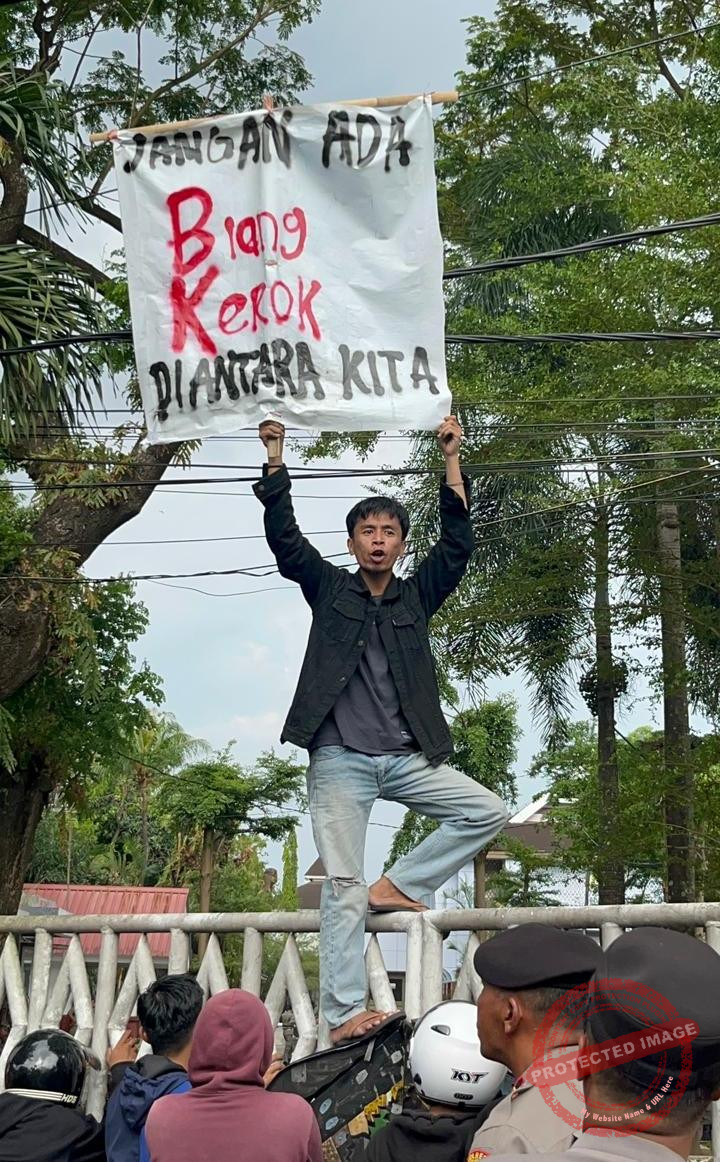 JANGAN ADA
Biang
KeROK
DIANTARA KITA
HDS
KYT
PROTECTED IMAGE
My Website Name & URL Here